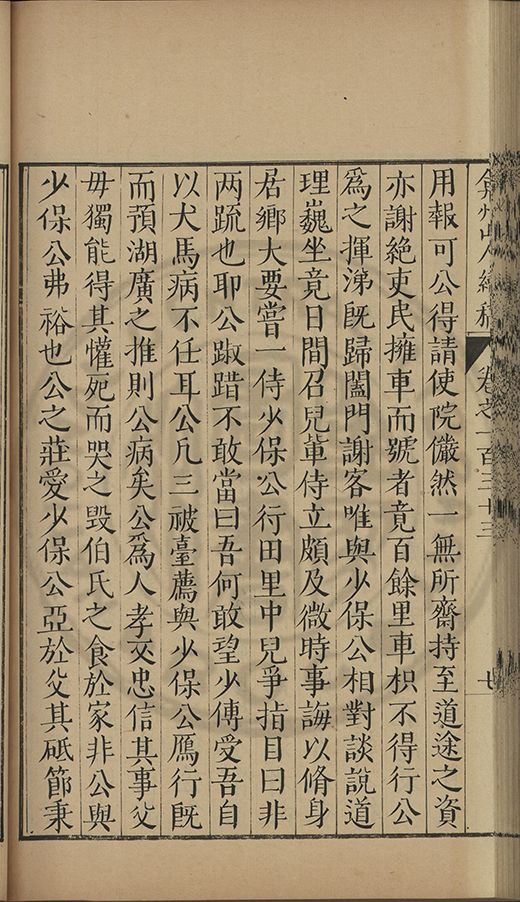 弇州山人續稿　卷之一百三十三　七
用報可公得請使院儼然一無所齎持至道途之資
亦謝絕吏民擁車而號者竟百餘里車枳不得行公
爲之揮涕旣歸闔門謝客唯與少保公相對談說道
理巍坐竟日間召兒軰侍立頗及微時事誨以脩身
居鄉大要嘗一侍少保公行田里中兒爭指目曰非
两疏也耶公踧踖不敢當曰吾何敢望少傅受吾自
以犬馬病不任耳公凡三被臺薦與少保公鴈行旣
而預湖廣之推則公病矣公爲人孝友忠信其事父
毋獨能得其懽死而哭之毀伯氏之食於家非公與
少保公弗裕也公之莊愛少保公亞於父其砥節秉